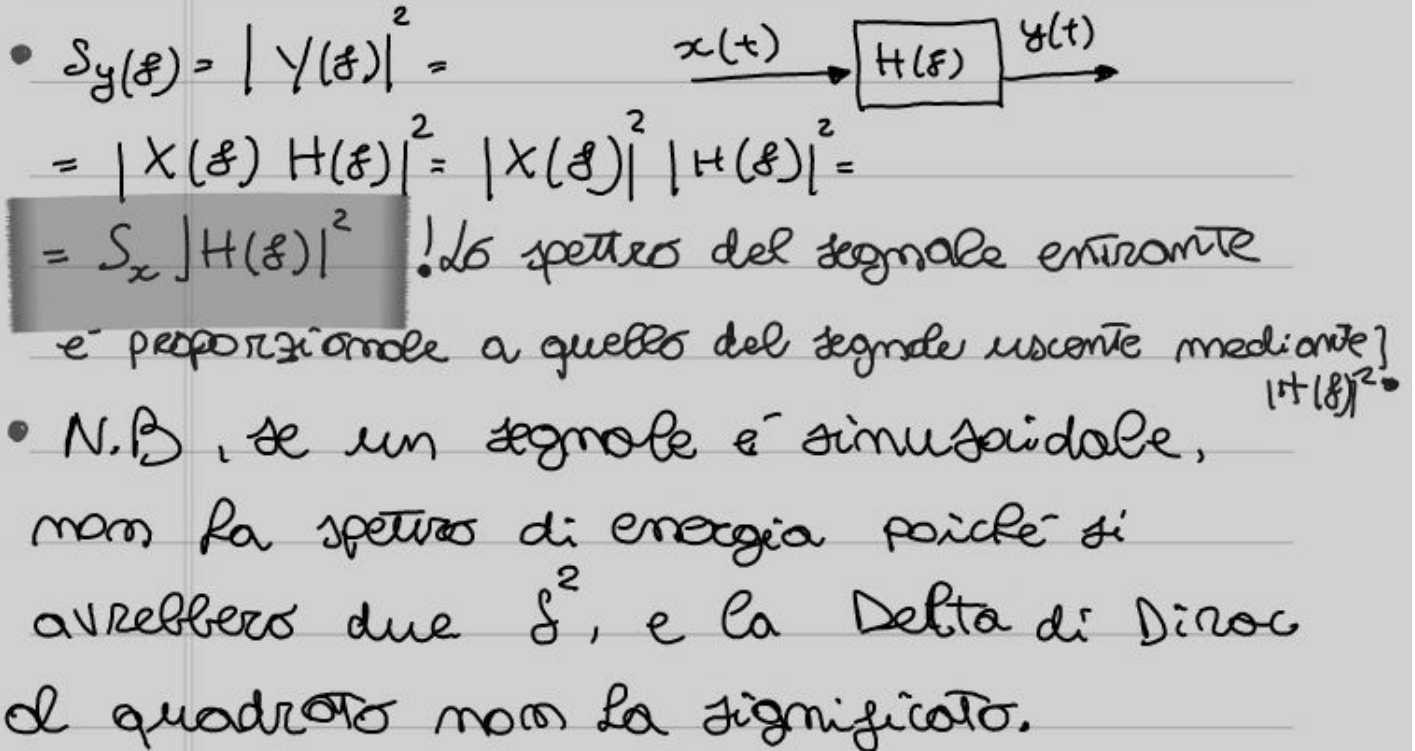 • Sy(f) = |Y(f)|² =
x(t) H(f) y(t)
= |X(f) H(f)|² = |X(f)|² |H(f)|² =
= Sx |H(f)|² ! Lo spettro del segnale entrante
è proporzionale a quello del segnale uscente mediante]
|H(f)|².
• N.B, se un segnale è sinusoidale,
non ha spettro di energia poiché si
avrebbero due δ², e la Delta di Dirac
al quadrato non ha significato.